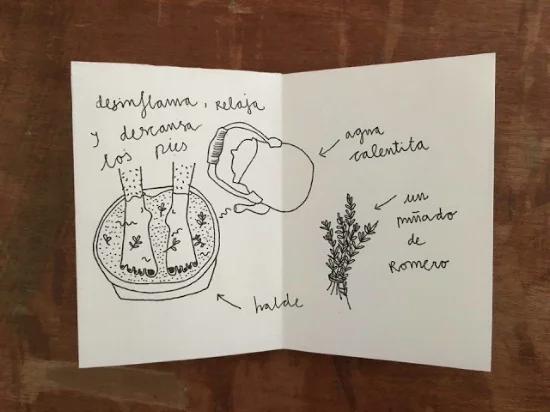 desinflama, relaja
y descansa
los pies
balde
agua
calentita
un
puñado
de
romero